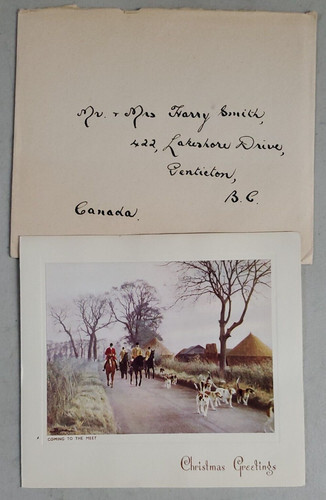 Mr. & Mrs Harry Smith,
422, Lakeshore Drive,
Penticton,
B.C.
Canada.
COMING TO THE MEET
Christmas Greetings